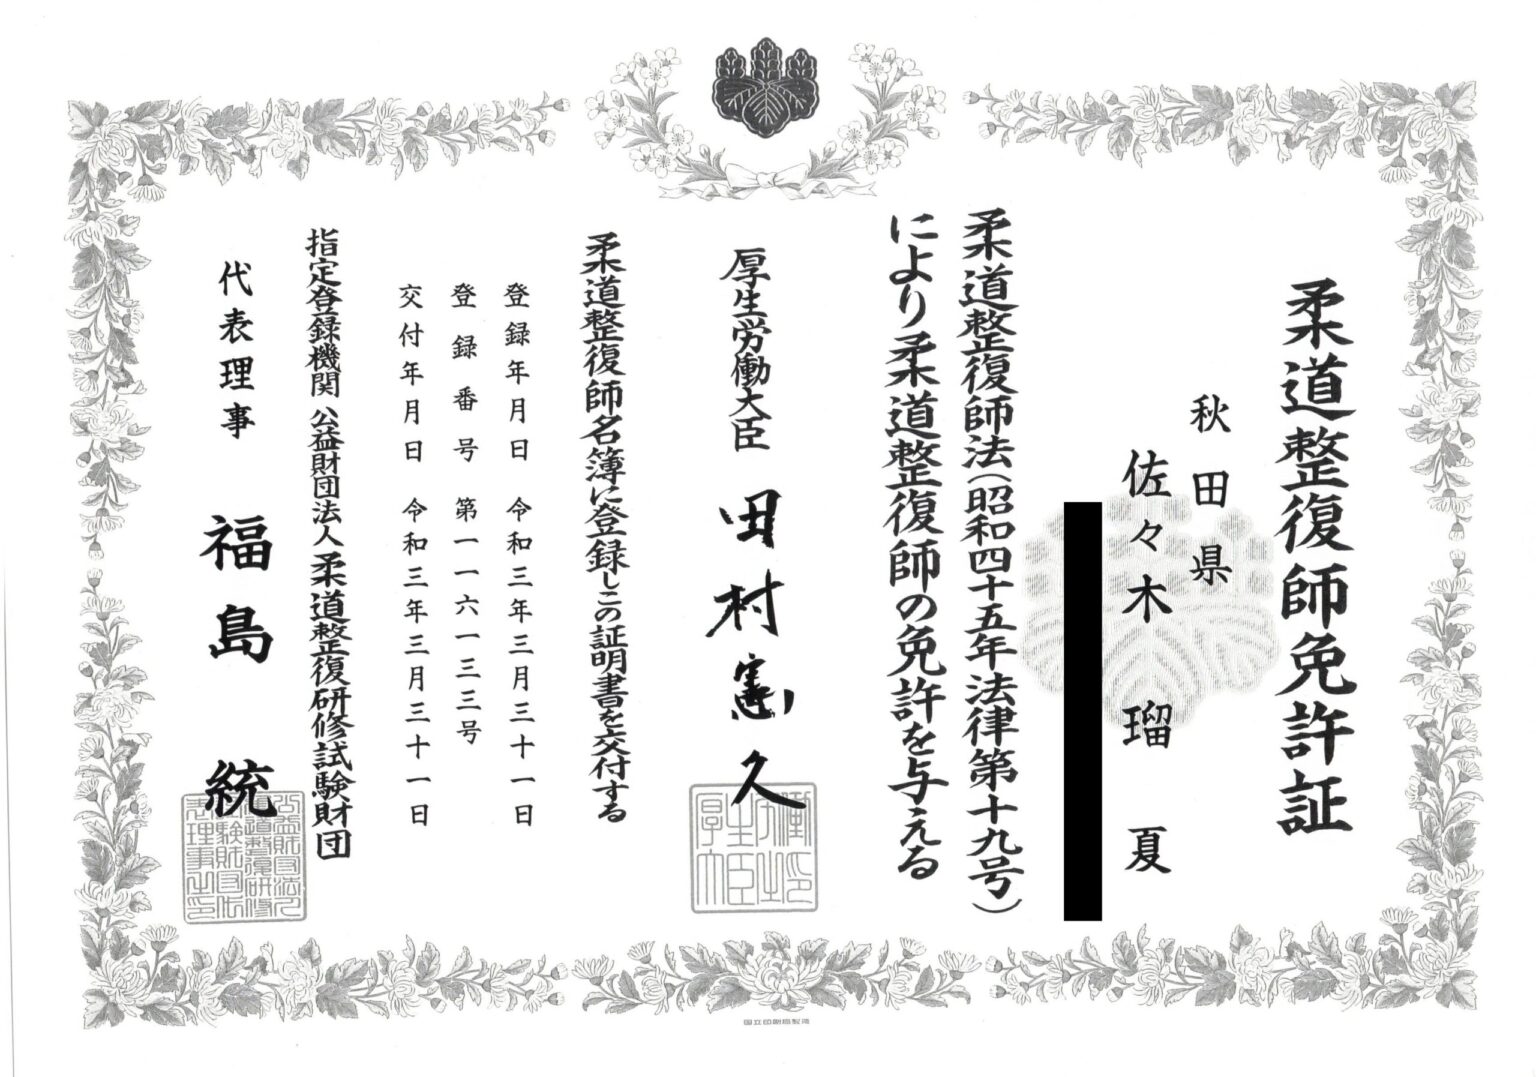 柔道整復師免許証
秋田県
佐々木瑠夏
柔道整復師法(昭和四十五年法律第十九号)
により柔道整復師の免許を与える
厚生労働大臣 田村憲久
柔道整復師名簿に登録しこの証明書を交付する
登録年月日 令和三年三月三十一日
登録番号 第一一六一三三号
交付年月日 令和三年三月三十一日
指定登録機関 公益財団法人 柔道整復研修試験財団
代表理事 福島統
国立印刷局製造